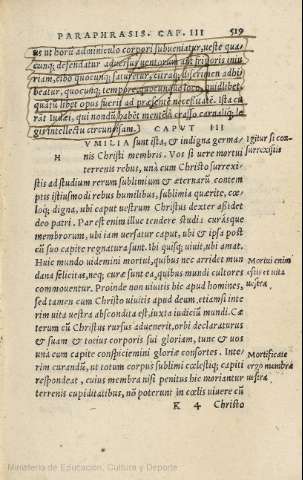 PARAPHRASIS. CAP. III 519
us ut horū adminiculo corpori subueniatur, ueste qua-
cunq; defendatur aduersus uentorum aut frigoris iniu-
riam, cibo quocunq; saturetur, citraq; discrimen adhi
beatur, quocunq; tempore, quocunque loco, quidlibet,
quātū libet opus fuerit ad præsentē necessitatē. Ista cu
rāt Iudæi, qui nondū habēt mentē à crasso carnaliq; le
gis intellectu circuncisam. CAPVT III
HVMILIA sunt ista, & indigna germa-
nis Christi membris. Vos si uere mortui
terrenis rebus, unà cum Christo surrexi-
stis ad studium rerum sublimium & æternarū contem
ptis istiusmodi rebus humilibus, sublimia quærite, cœ-
loq; digna, ubi caput uestrum Christus dexter assidet
deo patri. Par est enim illuc tendere studia curasque
membrorum, ubi iam uersatur caput, ubi & ipsa post
cū suo capite regnatura sunt. Ibi quisq; uiuit, ubi amat.
Huic mundo uidemini mortui, quibus nec arridet mun
dana felicitas, neq; curæ sunt ea, quibus mundi cultores
commouentur. Proinde non uiuitis hic apud homines,
sed tamen cum Christo uiuitis apud deum, etiamsi inte
rim uita uestra abscondita est iuxta iudiciū mundi. Cæ
terum cū Christus rursus aduenerit, orbi declaraturus
& suam & totius corporis sui gloriam, tunc & uos
unà cum capite conspiciemini gloriæ consortes. Inte-
rim curandū, ut totum corpus sublimi cœlestiq; capiti
respondeat, cuius membra nisi penitus hic moriantur
terrenis cupiditatibus, nō poterunt in cœlis uiuere cū
K 4 Christo
Igitur si con-
surrexistis
Mortui enim
estis et uita
uestra
Mortificate
ergo membra
uestra
Ministerio de Educación, Cultura y Deporte